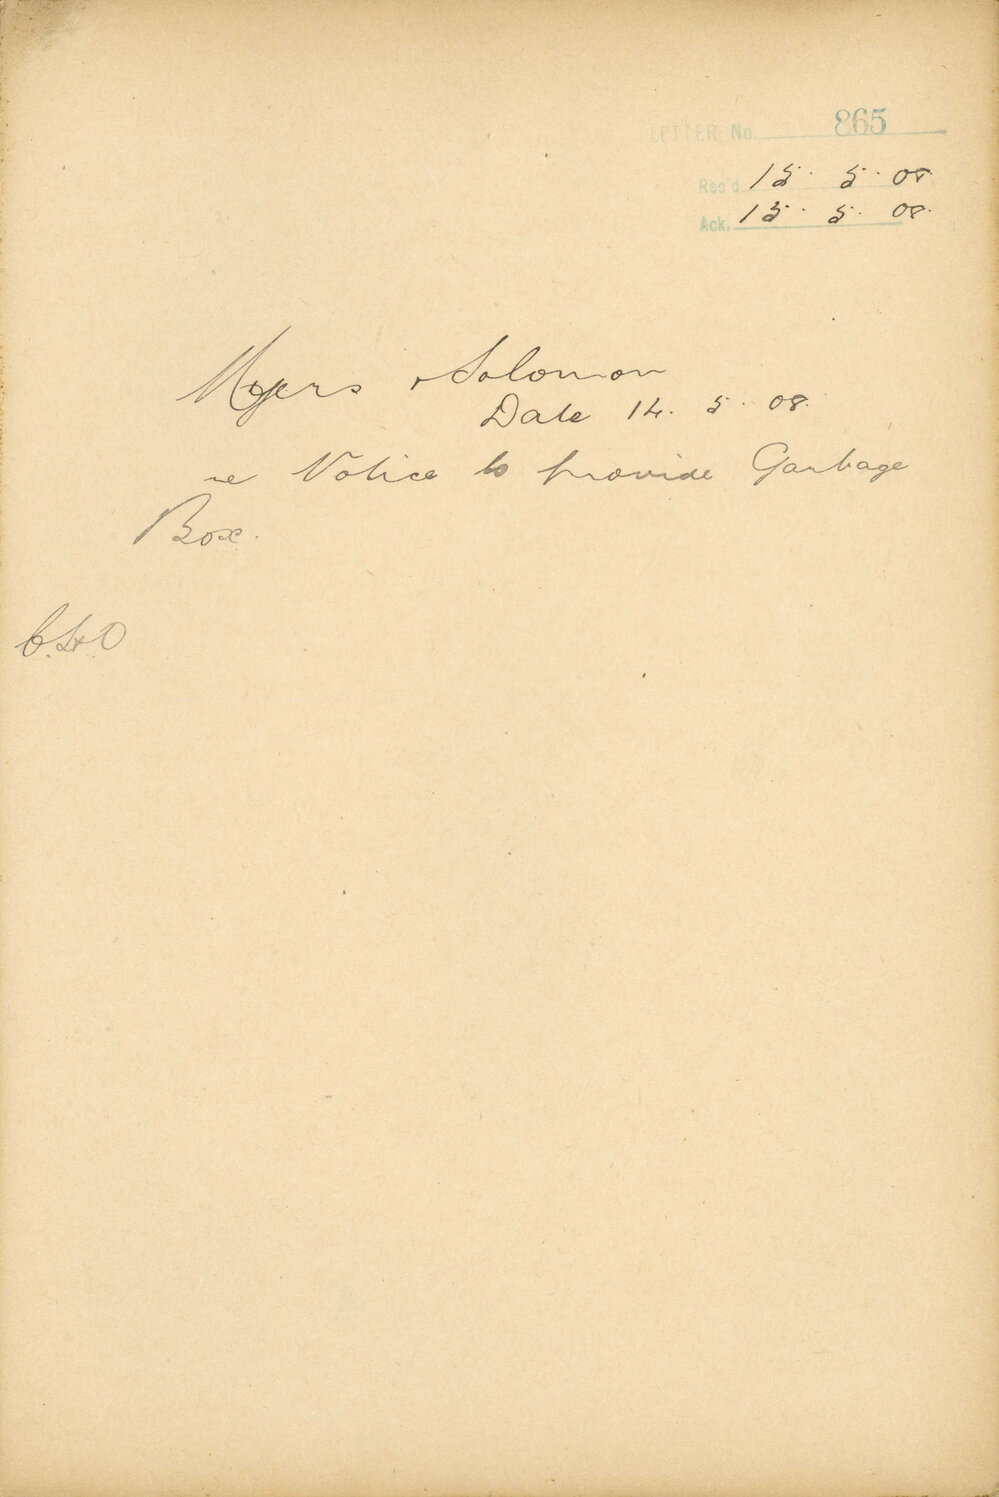 LETTER No. 865
Rec'd 15. 5. 08.
Ack. 15. 5. 08.
Myers & Solomon
Date 14. 5. 08.
re Notice to provide Garbage
Box.
C.H.O